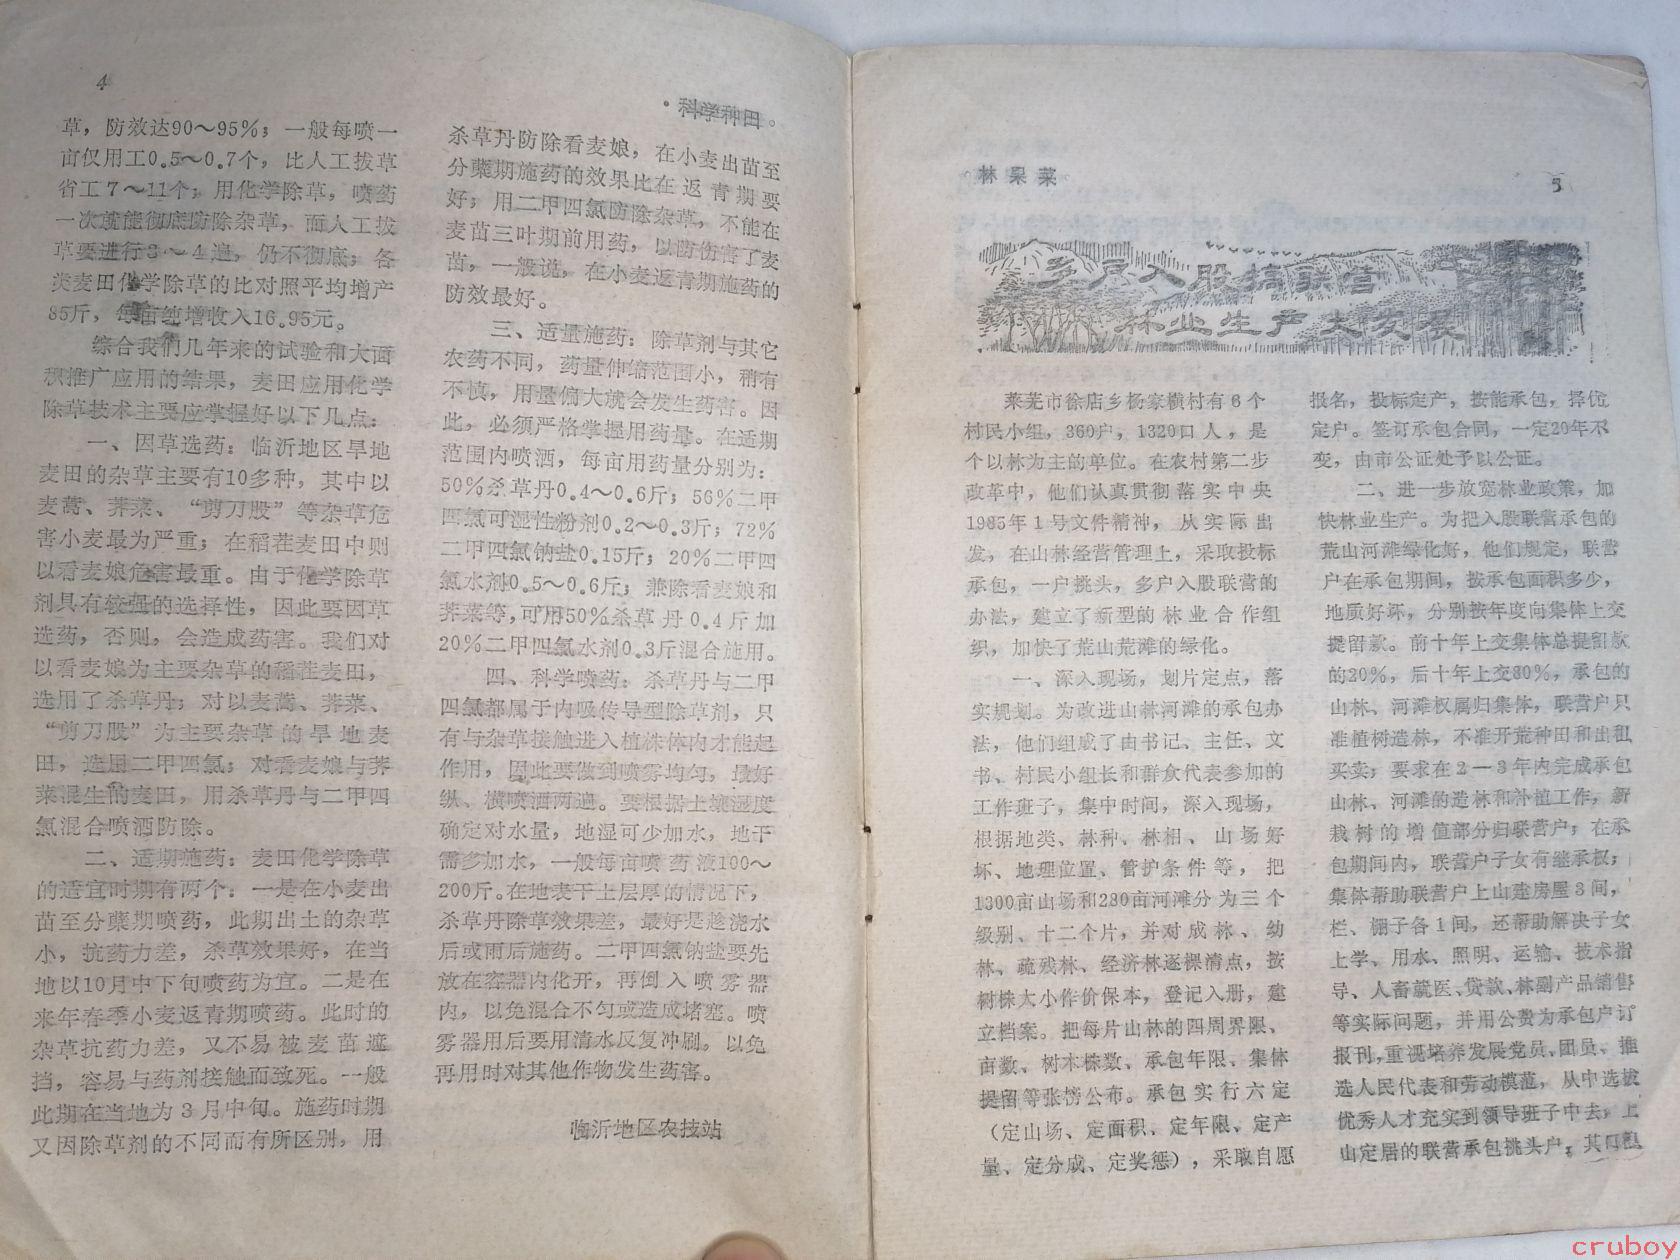 4
·科学种田。
草，防效达90～95%；一般每喷一
亩仅用工0.5～0.7个，比人工拔草
省工7～11个；用化学除草，喷药
一次就能彻底防除杂草，而人工拔
草要进行3～4遍，仍不彻底；各
类麦田化学除草的比对照平均增产
85斤，每亩纯增收入16.95元。
综合我们几年来的试验和大面
积推广应用的结果，麦田应用化学
除草技术主要应掌握好以下几点：
一、因草选药：临沂地区旱地
麦田的杂草主要有10多种，其中以
麦蒿、荠菜、“剪刀股”等杂草危
害小麦最为严重；在稻茬麦田中则
以看麦娘危害最重。由于化学除草
剂具有较强的选择性，因此要因草
选药，否则，会造成药害。我们对
以看麦娘为主要杂草的稻茬麦田，
选用了杀草丹；对以麦蒿、荠菜、
“剪刀股”为主要杂草的旱地麦
田，选用二甲四氯；对看麦娘与荠
菜混生的麦田，用杀草丹与二甲四
氯混合喷洒防除。
二、适期施药：麦田化学除草
的适宜时期有两个：一是在小麦出
苗至分蘖期喷药，此期出土的杂草
小，抗药力差，杀草效果好，在当
地以10月中下旬喷药为宜。二是在
来年春季小麦返青期喷药。此时的
杂草抗药力差，又不易被麦苗遮
挡，容易与药剂接触而致死。一般
此期在当地为3月中旬。施药时期
又因除草剂的不同而有所区别，用
杀草丹防除看麦娘，在小麦出苗至
分蘖期施药的效果比在返青期要
好；用二甲四氯防除杂草，不能在
麦苗三叶期前用药，以防伤害了麦
苗，一般说，在小麦返青期施药的
防效最好。
三、适量施药：除草剂与其它
农药不同，药量伸缩范围小，稍有
不慎，用量偏大就会发生药害。因
此，必须严格掌握用药量。在适期
范围内喷洒，每亩用药量分别为：
50%杀草丹0.4～0.6斤；56%二甲
四氯可湿性粉剂0.2～0.3斤；72%
二甲四氯钠盐0.15斤；20%二甲四
氯水剂0.5～0.6斤；兼除看麦娘和
荠菜等，可用50%杀草丹0.4斤加
20%二甲四氯水剂0.3斤混合施用。
四、科学喷药：杀草丹与二甲
四氯都属于内吸传导型除草剂，只
有与杂草接触进入植株体内才能起
作用，因此要做到喷雾均匀，最好
纵、横喷洒两遍。要根据土壤湿度
确定对水量，地湿可少加水，地干
需多加水，一般每亩喷药液100～
200斤。在地表干土层厚的情况下，
杀草丹除草效果差，最好是趁浇水
后或雨后施药。二甲四氯钠盐要先
放在容器内化开，再倒入喷雾器
内，以免混合不匀或造成堵塞。喷
雾器用后要用清水反复冲刷，以免
再用时对其他作物发生药害。
临沂地区农技站
·林果菜·
5
多户入股搞联营
林业生产大发展
莱芜市徐店乡杨家横村有6个
村民小组，360户，1320口人，是
个以林为主的单位。在农村第二步
改革中，他们认真贯彻落实中央
1985年1号文件精神，从实际出
发，在山林经营管理上，采取投标
承包，一户挑头，多户入股联营的
办法，建立了新型的林业合作组
织，加快了荒山荒滩的绿化。
一、深入现场，划片定点，落
实规划。为改进山林河滩的承包办
法，他们组成了由书记、主任、文
书、村民小组长和群众代表参加的
工作班子，集中时间，深入现场，
根据地类、林种、林相、山场好
坏、地理位置、管护条件等，把
1300亩山场和280亩河滩分为三个
级别、十二个片，并对成林、幼
林、疏残林、经济林逐棵清点，按
树株大小作价保本，登记入册，建
立档案。把每片山林的四周界限、
亩数、树木株数、承包年限、集体
提留等张榜公布。承包实行六定
（定山场、定面积、定年限、定产
量、定分成、定奖惩），采取自愿
报名，投标定产，按能承包，择优
定户。签订承包合同，一定20年不
变，由市公证处予以公证。
二、进一步放宽林业政策，加
快林业生产。为把入股联营承包的
荒山河滩绿化好，他们规定，联营
户在承包期间，按承包面积多少，
地质好坏，分别按年度向集体上交
提留款。前十年上交集体总提留款
的20%，后十年上交80%，承包的
山林、河滩权属归集体，联营户只
准植树造林，不准开荒种田和出租
买卖；要求在2—3年内完成承包
山林、河滩的造林和补植工作，新
栽树的增值部分归联营户；在承
包期间内，联营户子女有继承权；
集体帮助联营户上山建房屋3间，
栏、棚子各1间，还帮助解决子女
上学、用水、照明、运输、技术指
导、人畜就医、贷款、林副产品销售
等实际问题，并用公费为承包户订
报刊，重视培养发展党员、团员、推
选人民代表和劳动模范，从中选拔
优秀人才充实到领导班子中去；上
山定居的联营承包挑头户，其口粮
cruboy